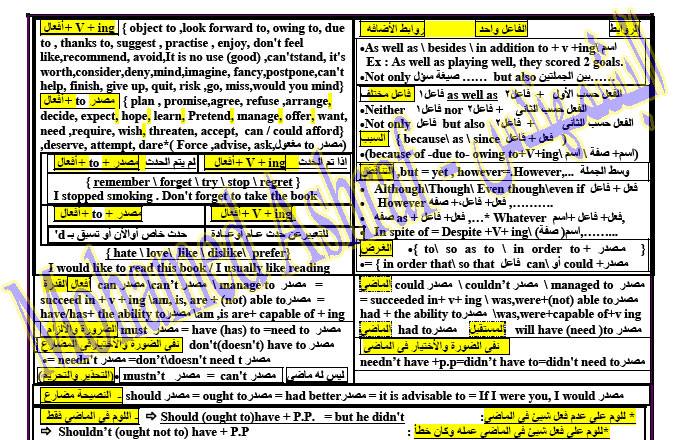 أفعال+ V + ing { object to ,look forward to, owing to, due
to , thanks to, suggest , practise , enjoy, don't feel
like,recommend, avoid,It is no use (good) ,can'tstand, it's
worth,consider,deny,mind,imagine, fancy,postpone,can't
help, finish, give up, quit, risk ,go, miss,would you mind}
أفعال+ to + مصدر { plan , promise,agree, refuse ,arrange,
decide, expect, hope, learn, Pretend, manage, offer, want,
need ,require, wish, threaten, accept, can / could afford}
,deserve, attempt, dare*( Force ,advise, ask,مفعول to مصدر
أفعال+ to + مصدر لم يتم الحدث أفعال+ V + ing اذا تم الحدث
{ remember \ forget \ try \ stop \ regret }
I stopped smoking . Don't forget to take the book
أفعال+ to + مصدر أفعال+ V + ing
حدث خاص أوالآن أو تسبق بـ d' للتعبيرعن حدث عام أوعادة
{ hate \ love\ like \ dislike\ prefer}
I would like to read this book / I usually like reading
القدرة أفعال can مصدر \can't مصدر \ manage to مصدر =
succeed in + v + ing \am, is, are + (not) able to مصدر=
have/has+ the ability to مصدر \am ,is are+ capable of + ing
الضرورة والألزام must مصدر = have (has) to =need to مصدر
نفى الضرورة والأختيار فى المضارع don't(doesn't) have to مصدر
= needn't مصدر =don't\doesn't need t مصدر
(التحذير والتحريم) mustn't مصدر = can't مصدر ليس له ماضي
الروابط الفاعل واحد روابط الأضافه
•As well as \ besides \ in addition to + v +ing\ اسم
Ex : As well as playing well, they scored 2 goals.
•Not only صيغة سؤل ...... but also بين الجملتين......
الفعل حسب الأول + فاعل٢ as well as فاعل١ فاعل مختلف
•Neither فاعل١ nor فاعل٢ + الفعل حسب الثانى
•Not only فاعل١ but also فاعل٢ + الفعل حسب الثانى
السبب { because\ as \ since فعل + فاعل ,
•(because of -due to- owing to+V+ing\ اسم \ صفة +اسم)
التناقض ,but = yet , however=.However,... وسط الجملة
Although\Though\ Even though\even if فعل + فاعل
However فعل+ فاعل+ صفه ,..........
صفه as + فعل+ فاعل ,...* Whatever فعل+ فاعل +اسم,
In spite of = Despite +V+ ing\ (اسم+صفة),........
الغرض •{ to\ so as to \ in order to + مصدر }
•= { in order that\ so that فاعل can\ أو could + مصدر
الماضي could مصدر \ couldn't مصدر \ managed to مصدر
= succeeded in+ v+ ing \ was,were+(not) able to مصدر
had + the ability to مصدر \was,were+capable of+v ing
الماضي had to مصدر المستقبل will have (need )to مصدر
نفى الضورة والأختيار فى الماضي
needn't have +p.p=didn't have to=didn't need to مصدر
النصيحة مضارع - should مصدر = ought to مصدر = had better مصدر = it is advisable to = If I were you, I would مصدر
اللوم فى الماضي فقط - ⇨ Should (ought to)have + P.P. = but he didn't * للوم على عدم فعل شيئ فى الماضي:
⇨ Shouldn't (ought not to) have + P.P *للوم على فعل شيئ فى الماضي عمله وكان خطأ: